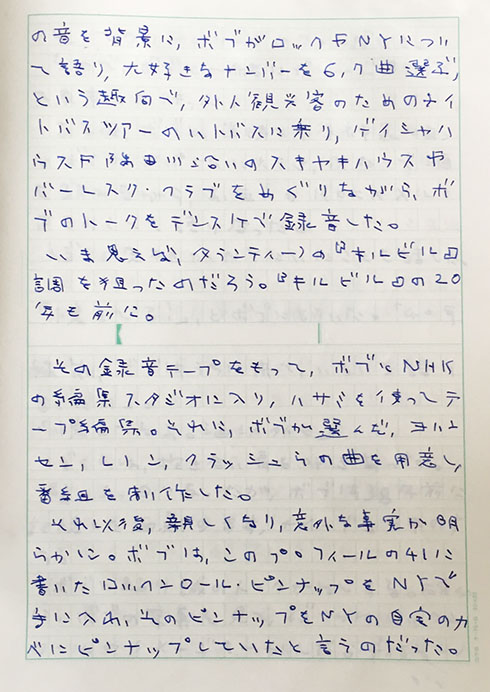 の音を背景に，ボブがロックやNYについ
て語り，大好きなナンバーを6，7曲選ぶ，
という趣向で，外人観光客のためのナイ
トバスツアーのハトバスに乗り，ゲイシャハ
ウスや隅田川沿いのスキヤキハウスや
バーレスク・クラブをめぐりながら，ボ
ブのトークをデンスケで録音した。
いま思えば，タランティーノの『キルビル』
調を狙ったのだろう。『キルビル』の20
年も前に。
その録音テープをもって，ボブとNHK
の編集スタジオに入り，ハサミを使ってテ
ープ編集。それに，ボブが選んだ，ヨハン
セン，レノン，クラッシュらの曲を用意し，
番組を制作した。
それ以後，親しくなり，意外な事実が明
らかに。ボブは，このプロフィールの41に
書いたロックンロール・ピンナップをNYで
手に入れ，そのピンナップをNYの自宅のカ
ベにピンナップしていたと言うのだった。